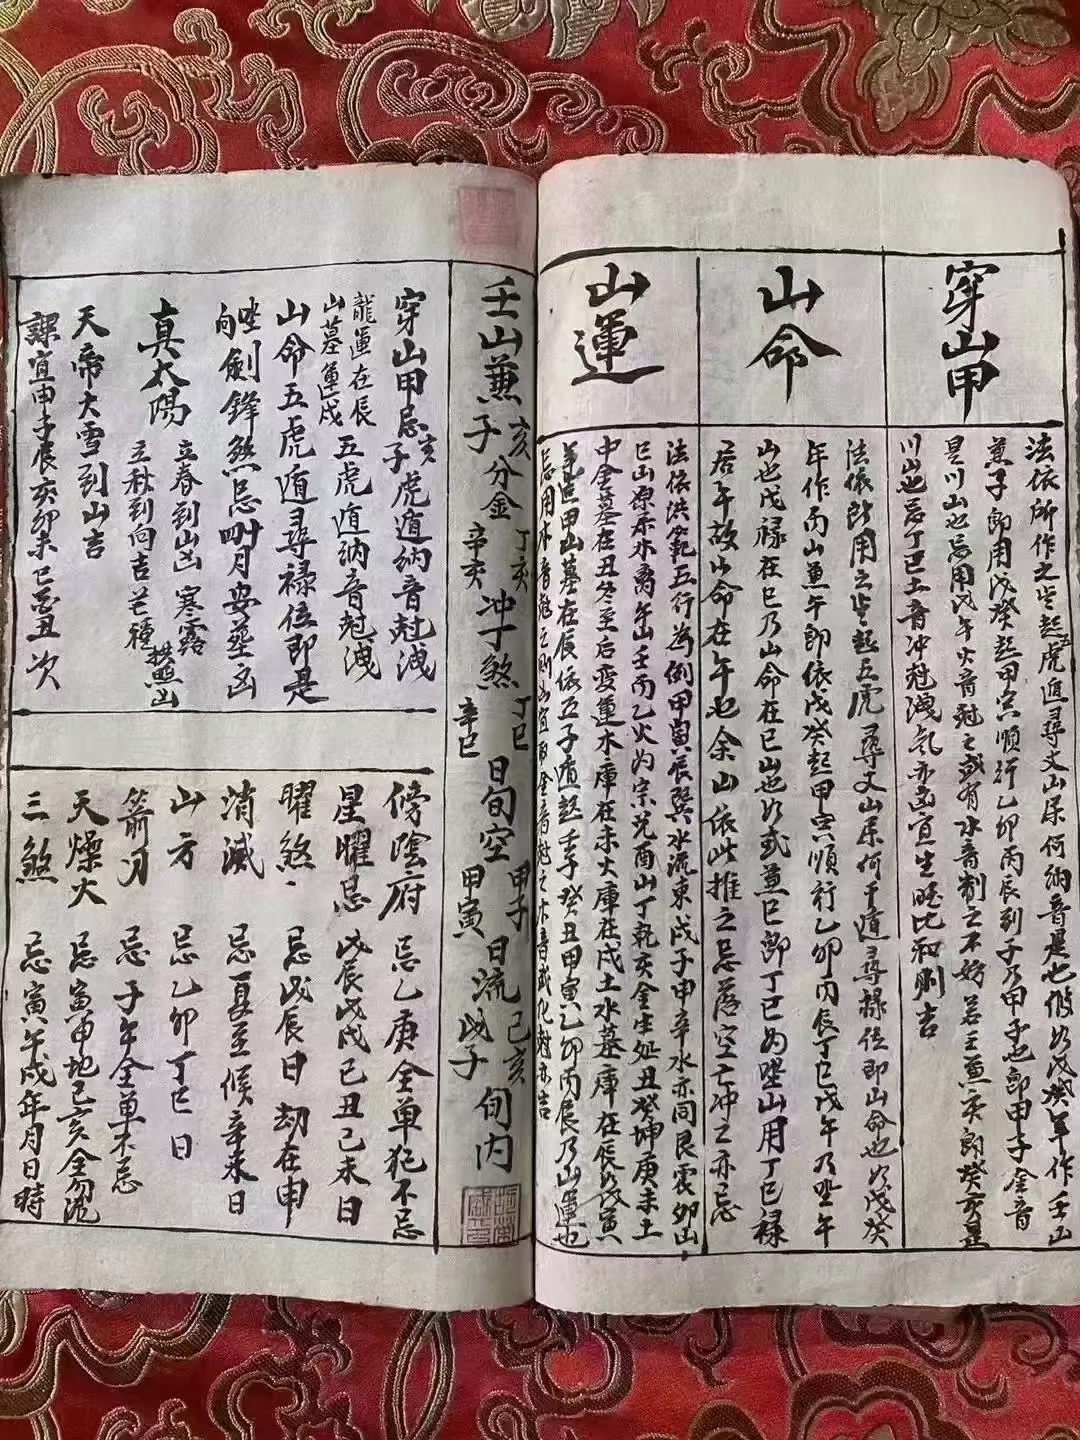 穿山甲
法依所作之坐起五虎遁尋丈山屬何納音是也假如戊癸年作壬山
兼子即用戊癸起甲寅順行乙卯丙辰到子乃甲子也即甲子金音
是川山也忌用戊午火音尅之或有水音制之不妨若壬兼亥即癸亥是
川山也忌丁巳土音冲尅洩氣亦凶宜生旺比和則吉
山命
法依所用之坐起五虎尋丈山屬何干遁尋祿位即山命也如戊癸
年作丙山兼午即依戊癸起甲寅順行乙卯丙辰丁巳戊午乃坐午
山也戊祿在巳乃山命在巳山也如或兼巳即丁巳為坐山用丁巳禄
居午故山命在午也余山依此推之忌落空亡冲之亦忌
山運
法依洪範五行為例甲寅辰巽水流東戌子申辛水亦同艮震卯山
巳山原來木離午山壬丙乙火为宗兑酉山丁乾亥金生处丑癸坤庚未土
中金墓在丑冬至后变運木庫在未火庫在戌土水墓庫在辰如戊寅
年造甲山墓在辰依五子遁起壬子癸丑甲寅乙卯丙辰乃山運也
忌用木音尅之則凶宜取金音尅之木音或化尅亦吉
壬山兼亥子分金丁亥辛亥冲丁煞丁巳辛巳日旬空甲子甲寅日流己亥戊子旬内
穿山甲忌亥子虎遁納音尅洩
龍運在辰山墓運戌五虎遁納音尅洩
山命五虎遁尋禄位即是
坐向劍鋒煞忌四十月安葬凶
真太陽立春到山凶立秋到向吉寒露芒種拱照山
天帝大雪到山吉
課宜申子辰亥卯未巳酉丑次
傍陰府忌乙庚全單犯不忌
星曜忌戊辰戊戌己丑己未日
曜煞忌戊辰日劫在申
消滅忌夏至候辛未日
山方忌乙卯丁巳日
箭刃忌子午全單不忌
天燥火忌寅申地己亥全勿犯
三煞忌寅午戌年月日時